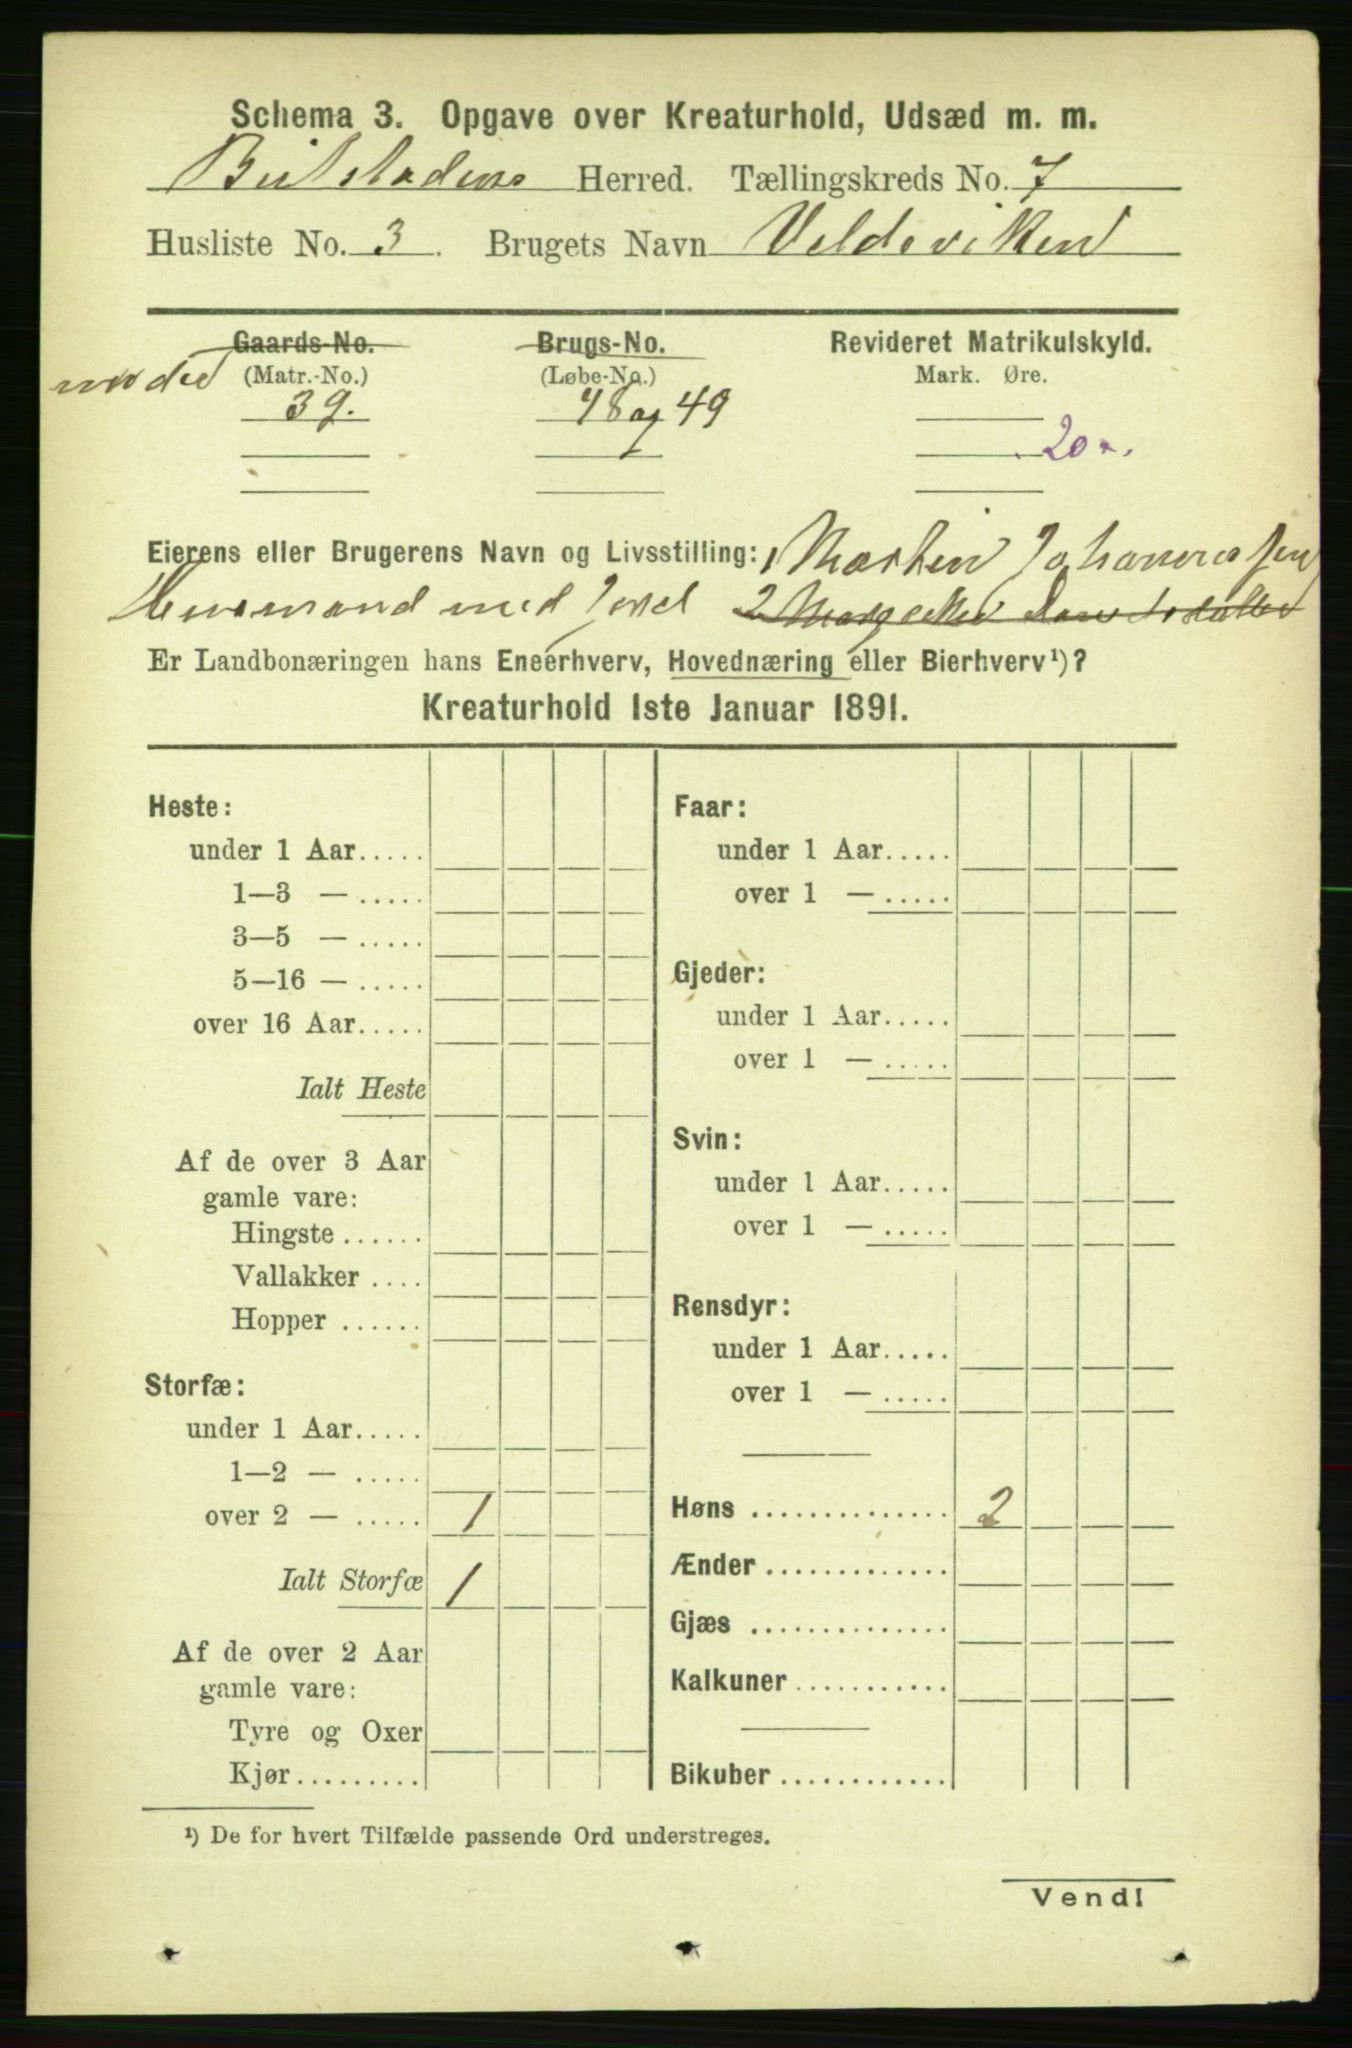 Schema 3. Opgave over Kreaturhold, Udsæd m. m.
Beitstadens Herred. Tællingskreds No. 7
Husliste No. 3. Brugets Navn Veldeviken
Gaards-No. Brugs-No. Revideret Matrikulskyld.
(Matr.-No.) (Løbe-No.) Mark. Øre.
39. 48 og 49
20
Eierens eller Brugerens Navn og Livsstilling: Martin Johannessen
Husmand med Jord 2
Er Landbonæringen hans Eneerhverv, Hovednæring eller Bierhverv¹)?
Kreaturhold 1ste Januar 1891.
Heste:
under 1 Aar.....
1—3 — .....
3—5 — .....
5—16 — .....
over 16 Aar.....
Ialt Heste
Af de over 3 Aar
gamle vare:
Hingste ......
Vallakker ....
Hopper ......
Storfæ:
under 1 Aar.....
1—2 — .....
over 2 — ..... 1
Ialt Storfæ 1
Af de over 2 Aar
gamle vare:
Tyre og Oxer
Kjør.........
Faar:
under 1 Aar.....
over 1 — .....
Gjeder:
under 1 Aar.....
over 1 — .....
Svin:
under 1 Aar.....
over 1 — .....
Rensdyr:
under 1 Aar.....
over 1 — .....
Høns .............. 2
Ænder .............
Gjæs ..............
Kalkuner ...........
Bikuber .............
¹) De for hvert Tilfælde passende Ord understreges.
Vend!